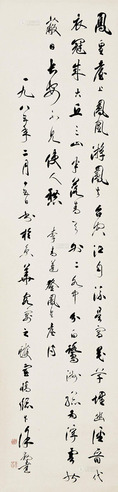 鳳皇臺上鳳凰遊鳳去台空江自流吳宮花草埋幽徑晉代
衣冠成古丘三山半落青天外二水中分白鷺洲總為浮雲能
蔽日長安不見使人愁 李白登鳳凰臺詩
一九八三年二月十五日書於京華